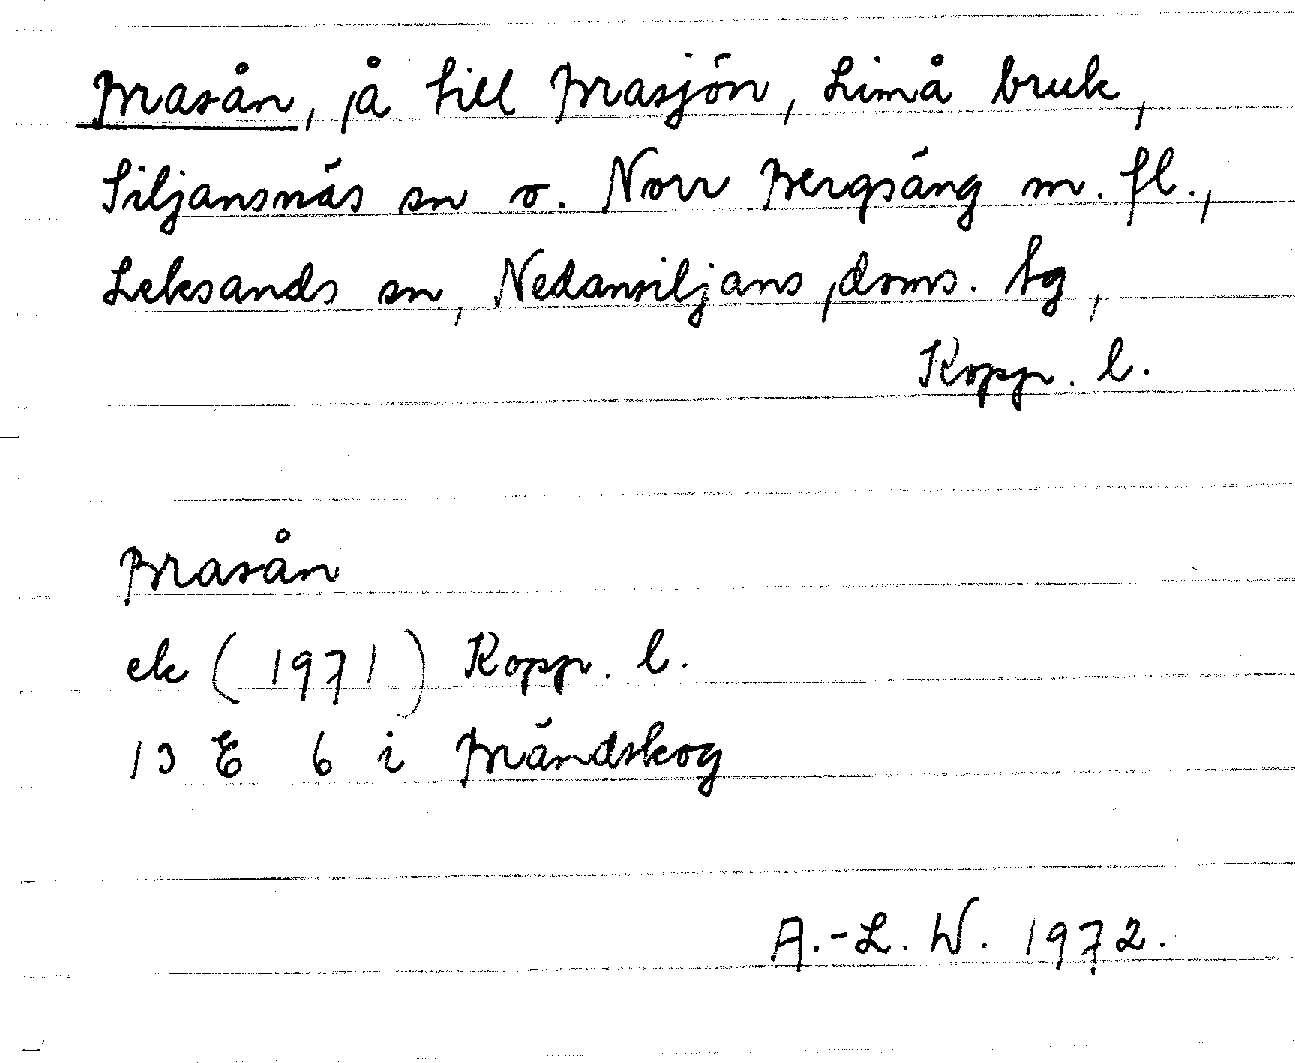 Brasån, å till Brasjön, Limå bruk,
Siljansnäs sn o. Norr Bergsäng m. fl.,
Leksands sn, Nedansiljans doms. tg,
Kopp. l.
Brasån
ek (1971) Kopp. l.
13 E 6 i Brändskog
A.-L. W. 1972.